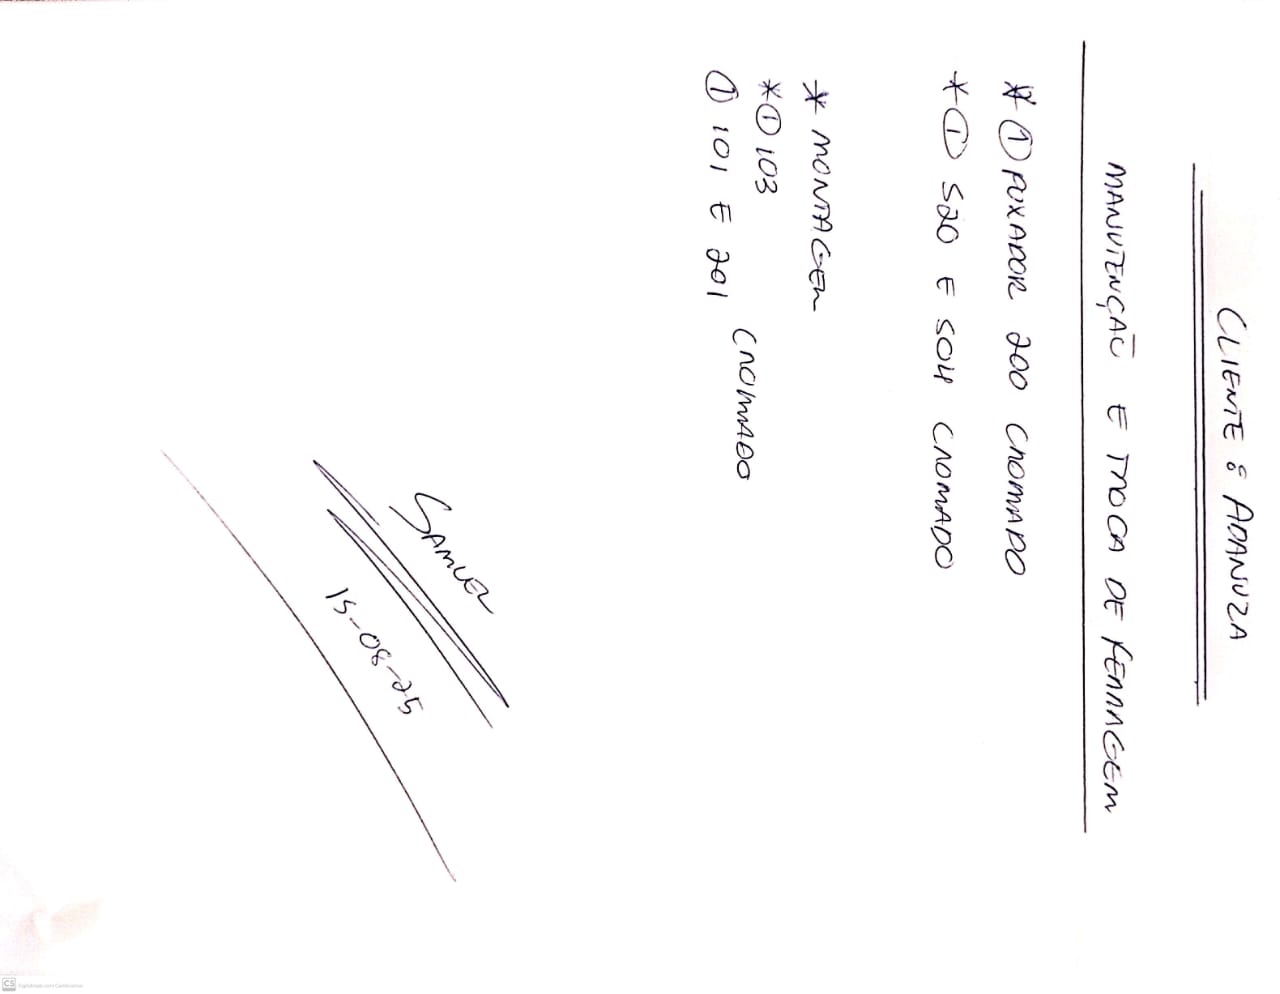 CLIENTE : ADANUZA
MANUTENÇÃO E TROCA DE FERRAGEM
* ① PUXADOR 200 CROMADO
* ① 520 E 504 CROMADO
* MONTAGEM
* ① 103
① 101 E 201 CROMADO
SAMUEL
15-08-25
CS